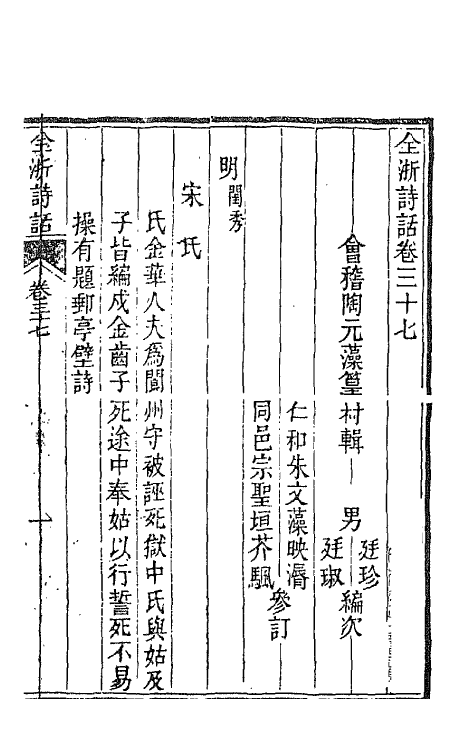 全浙詩話卷三十七
會稽陶元藻篁村輯 男 廷珍 廷琡 編次
仁和朱文藻映漘
同邑宗聖垣芥驅
參訂
明閨秀
宋氏
氏金華人夫為閬州守被誣死獄中氏與姑及
子皆編戍金齒子死途中奉姑以行誓死不易
操有題郵亭壁詩
全浙詩話
卷三十七
一